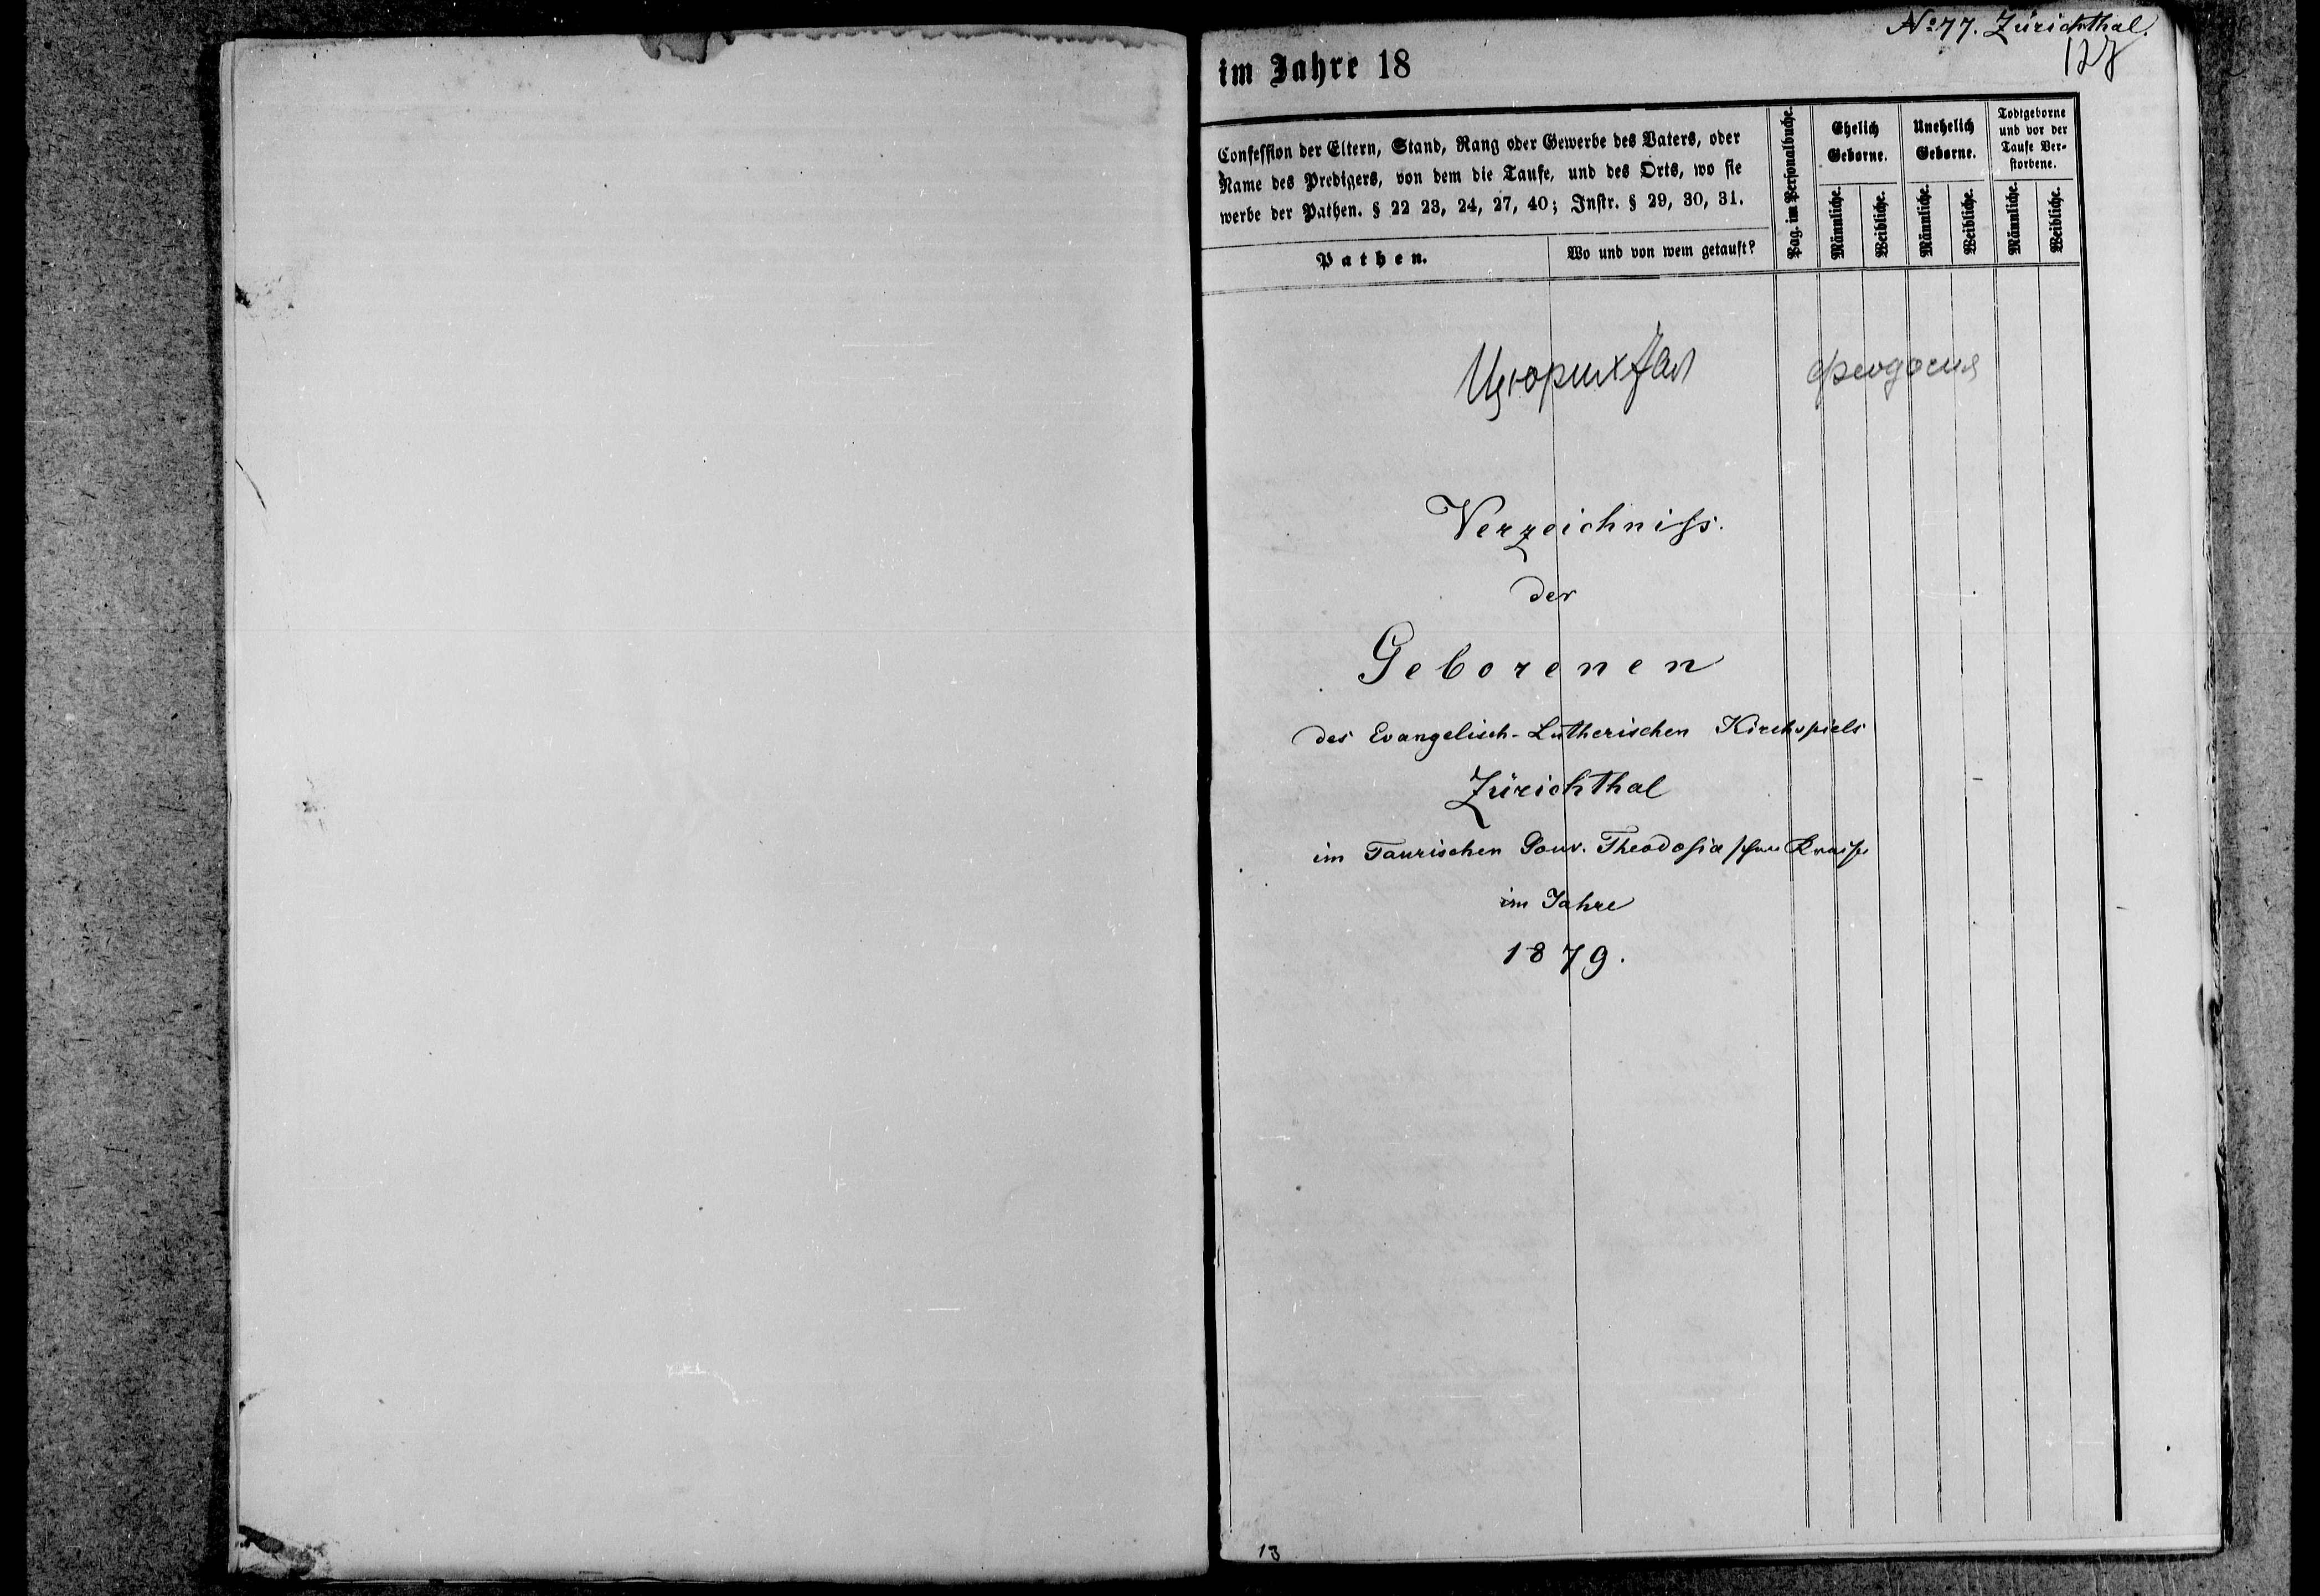 No 77. Zürichthal.
im Jahre 18
Confession der Eltern, Stand, Rang oder Gewerbe des Vaters, oder
Name des Predigers, von dem die Taufe, und des Orts, wo sie
werbe der Pathen. § 22 23, 24, 27, 40; Instr. § 29, 30, 31.
Pathen.
Wo und von wem getauft?
Pag. im Personalbuche.
Ehelich
Geborne.
Unehelich
Geborne.
Todtgeborne
und vor der
Taufe Ver-
storbene.
Männliche.
Weibliche.
Männliche.
Weibliche.
Männliche.
Weibliche.
Цюрихтал Феодосия
Verzeichniss.
der
Geborenen
des Evangelisch-Lutherischen Kirchspiels
Zürichthal
im Taurischen Gouv. Theodosia'schen Kreise
im Jahre
1879.
13